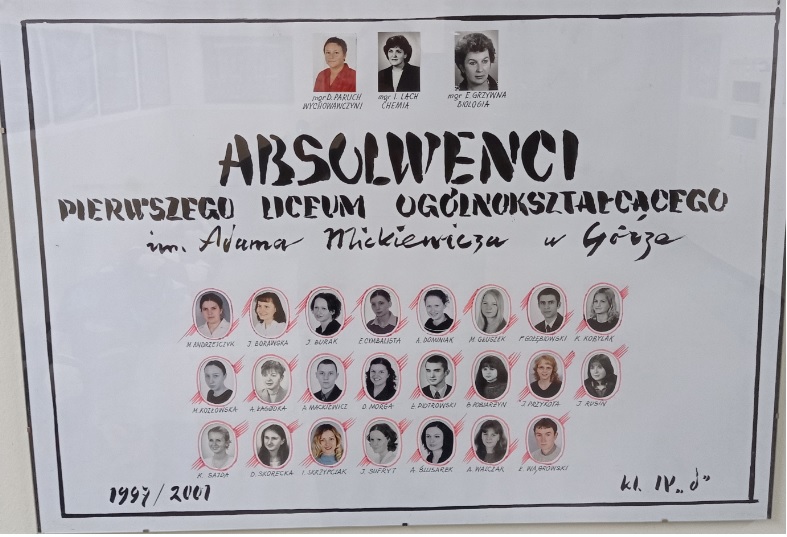 mgr D. PARUCH
WYCHOWAWCZYNI
mgr I. LACH
CHEMIA
mgr E. GRZYWNA
BIOLOGIA
ABSOLWENCI
PIERWSZEGO LICEUM OGÓLNOKSZTAŁCĄCEGO
im. Adama Mickiewicza w Górze
M. ANDRZEJCZYK J. BORAWSKA J. BURAK E. CYMBALISTA A. DOMINIAK M. GŁUSZEK P. GOŁĘBIOWSKI K. KOBYLAK
M. KOZŁOWSKA A. ŁAGÓDKA A. MACKIEWICZ D. MORGA Ł. PIOTROWSKI J. PRZYKOTA J. RUSIN
K. SAJDA D. SKORECKA I. SKRZYPCZAK J. SUFRYT A. ŚLUSAREK A. WALCZAK Ł. WĄBROWSKI
1997/2001
kl. IV "d"